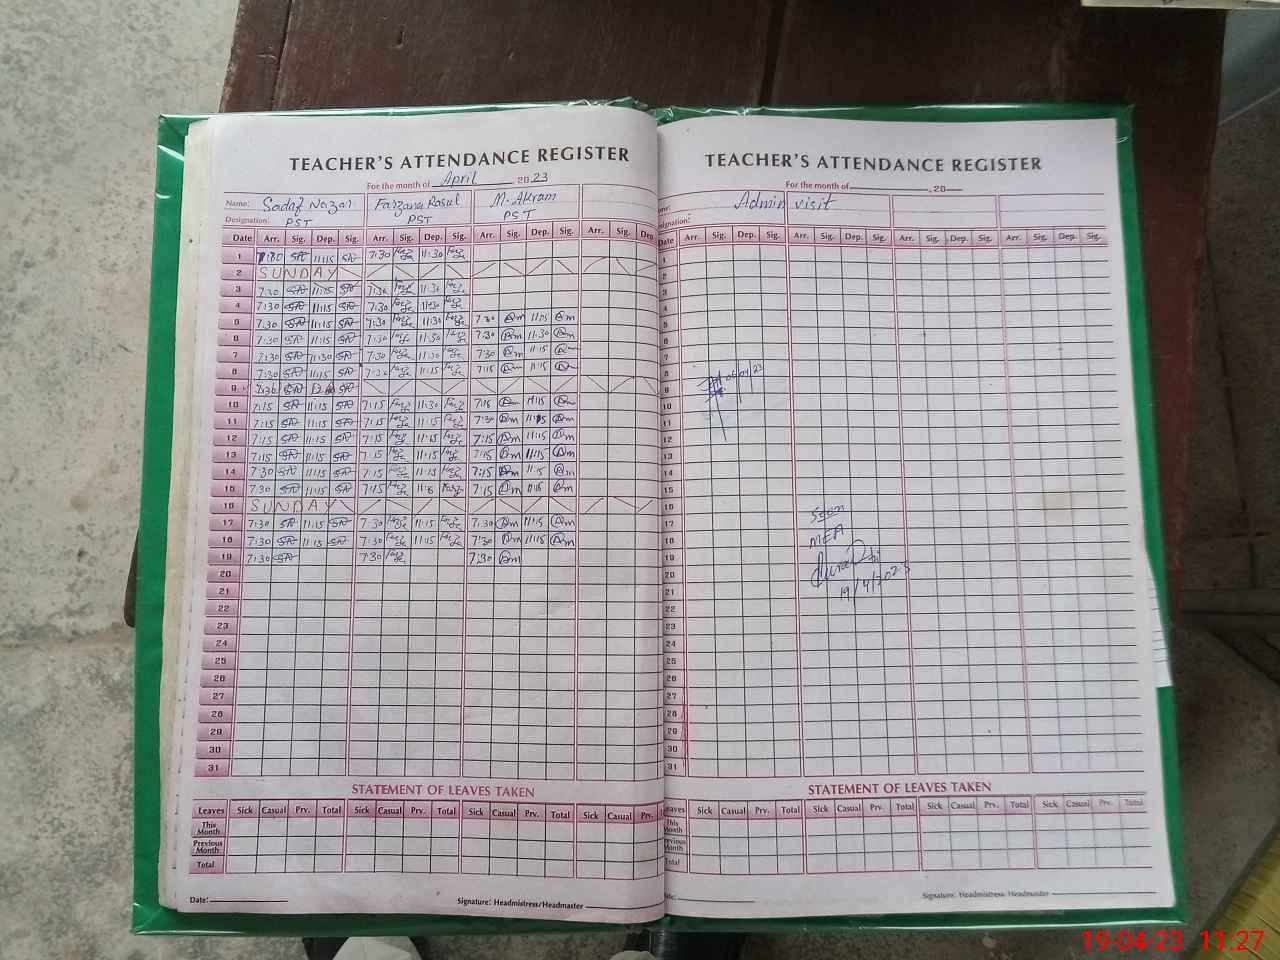 TEACHER'S ATTENDANCE REGISTER
For the month of April 2023
Name: Sadaf Nazar Farzana Rasul M. Akram
Designation: PST PST PST
Date Arr. Sig. Dep. Sig. Arr. Sig. Dep. Sig. Arr. Sig. Dep. Sig. Arr. Sig. Dep.
1 7:30 11:15 7:30 11:30
2 SUNDAY
3 7:30 11:15 7:30 11:30
4 7:30 11:15 7:30 11:30
5 7:30 11:15 7:30 11:30 7:30 11:15
6 7:30 11:15 7:30 11:30 7:30 11:30
7 7:30 11:30 7:30 11:30 7:30 11:15
8 7:30 11:15 7:30 11:15 7:15 11:15
9 7:30
10 7:15 11:15 7:15 11:30 7:15 11:15
11 7:15 11:15 7:15 11:15 7:30 11:15
12 7:15 11:15 7:15 11:15 7:15 11:15
13 7:15 11:15 7:15 11:15 7:15 11:15
14 7:30 11:15 7:15 11:15 7:15 11:15
15 7:30 11:15 7:15 7:15 11:15
16 SUNDAY
17 7:30 11:15 7:30 11:15 7:30 11:15
18 7:30 11:15 7:30 11:15 7:30 11:15
19 7:30 7:30 7:30
20
21
22
23
24
25
26
27
28
29
30
31
STATEMENT OF LEAVES TAKEN
Leaves Sick Casual Prv. Total Sick Casual Prv. Total Sick Casual Prv. Total Sick Casual Prv.
This Month
Previous Month
Total
Date:
Signature: Headmistress/Headmaster
TEACHER'S ATTENDANCE REGISTER
For the month of , 20
Admin visit
Designation:
Date Arr. Sig. Dep. Sig. Arr. Sig. Dep. Sig. Arr. Sig. Dep. Sig. Arr. Sig. Dep. Sig.
1
2
3
4
5
6
7
8
9
10
11
12
13
14
15
16
17
18
19
20
21
22
23
24
25
26
27
28
29
30
31
06/04/23
Seen
MEA
19/4/2023
STATEMENT OF LEAVES TAKEN
Leaves Sick Casual Prv. Total Sick Casual Prv. Total Sick Casual Prv. Total Sick Casual Prv. Total
This Month
Previous Month
Total
Signature: Headmistress/Headmaster
19-04-23 11:27